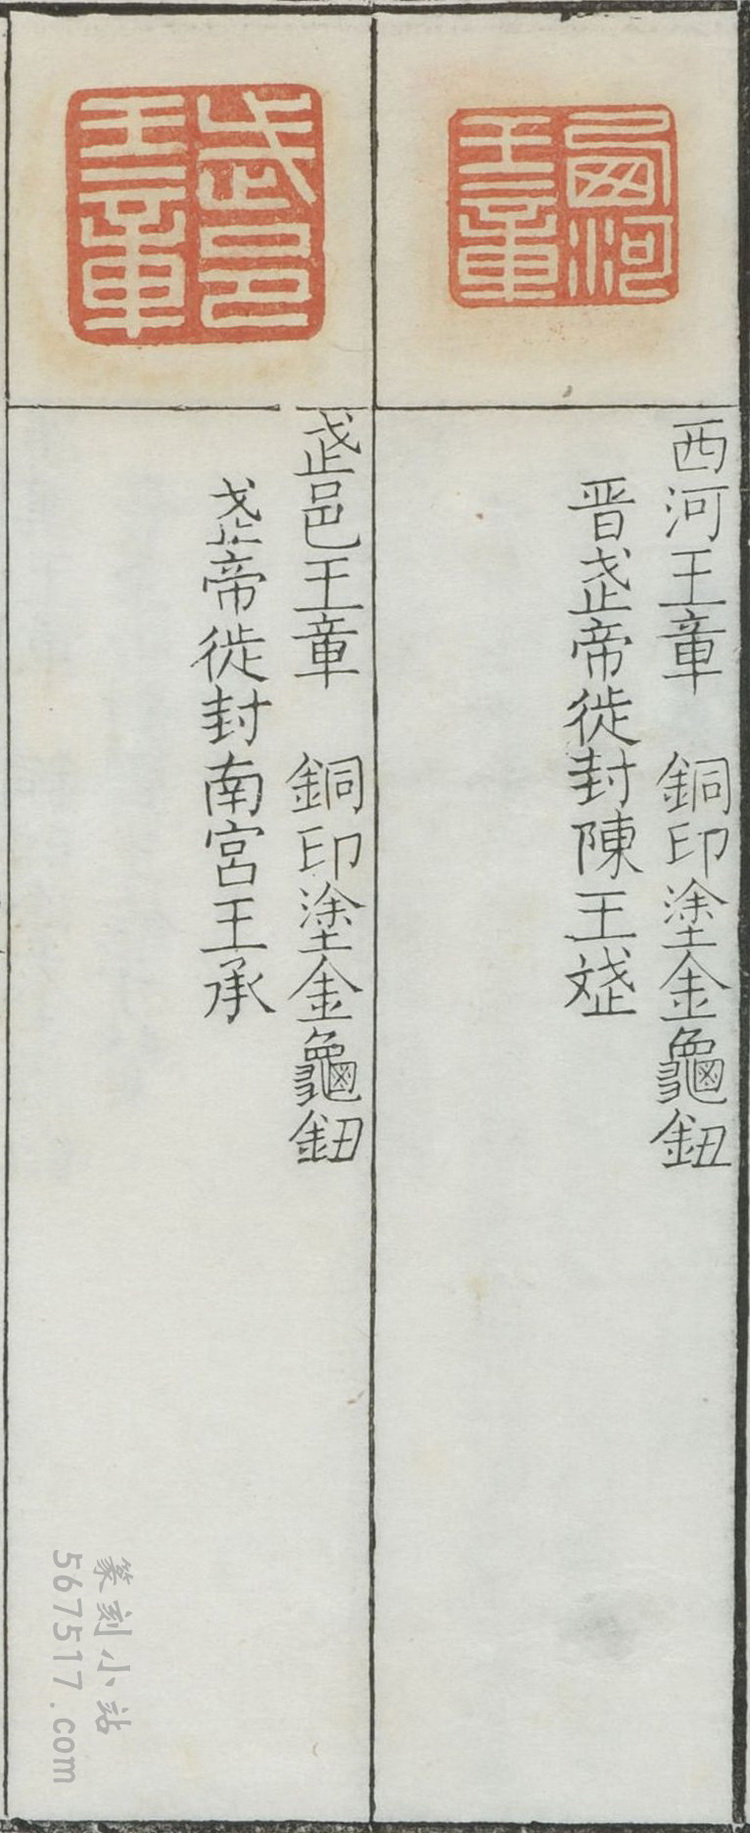 西河王章
西河王章　銅印塗金龜鈕
晋武帝徙封陳王斌
武邑王章
武邑王章　銅印塗金龜鈕
武帝徙封南宮王承
篆刻小站
567517.com